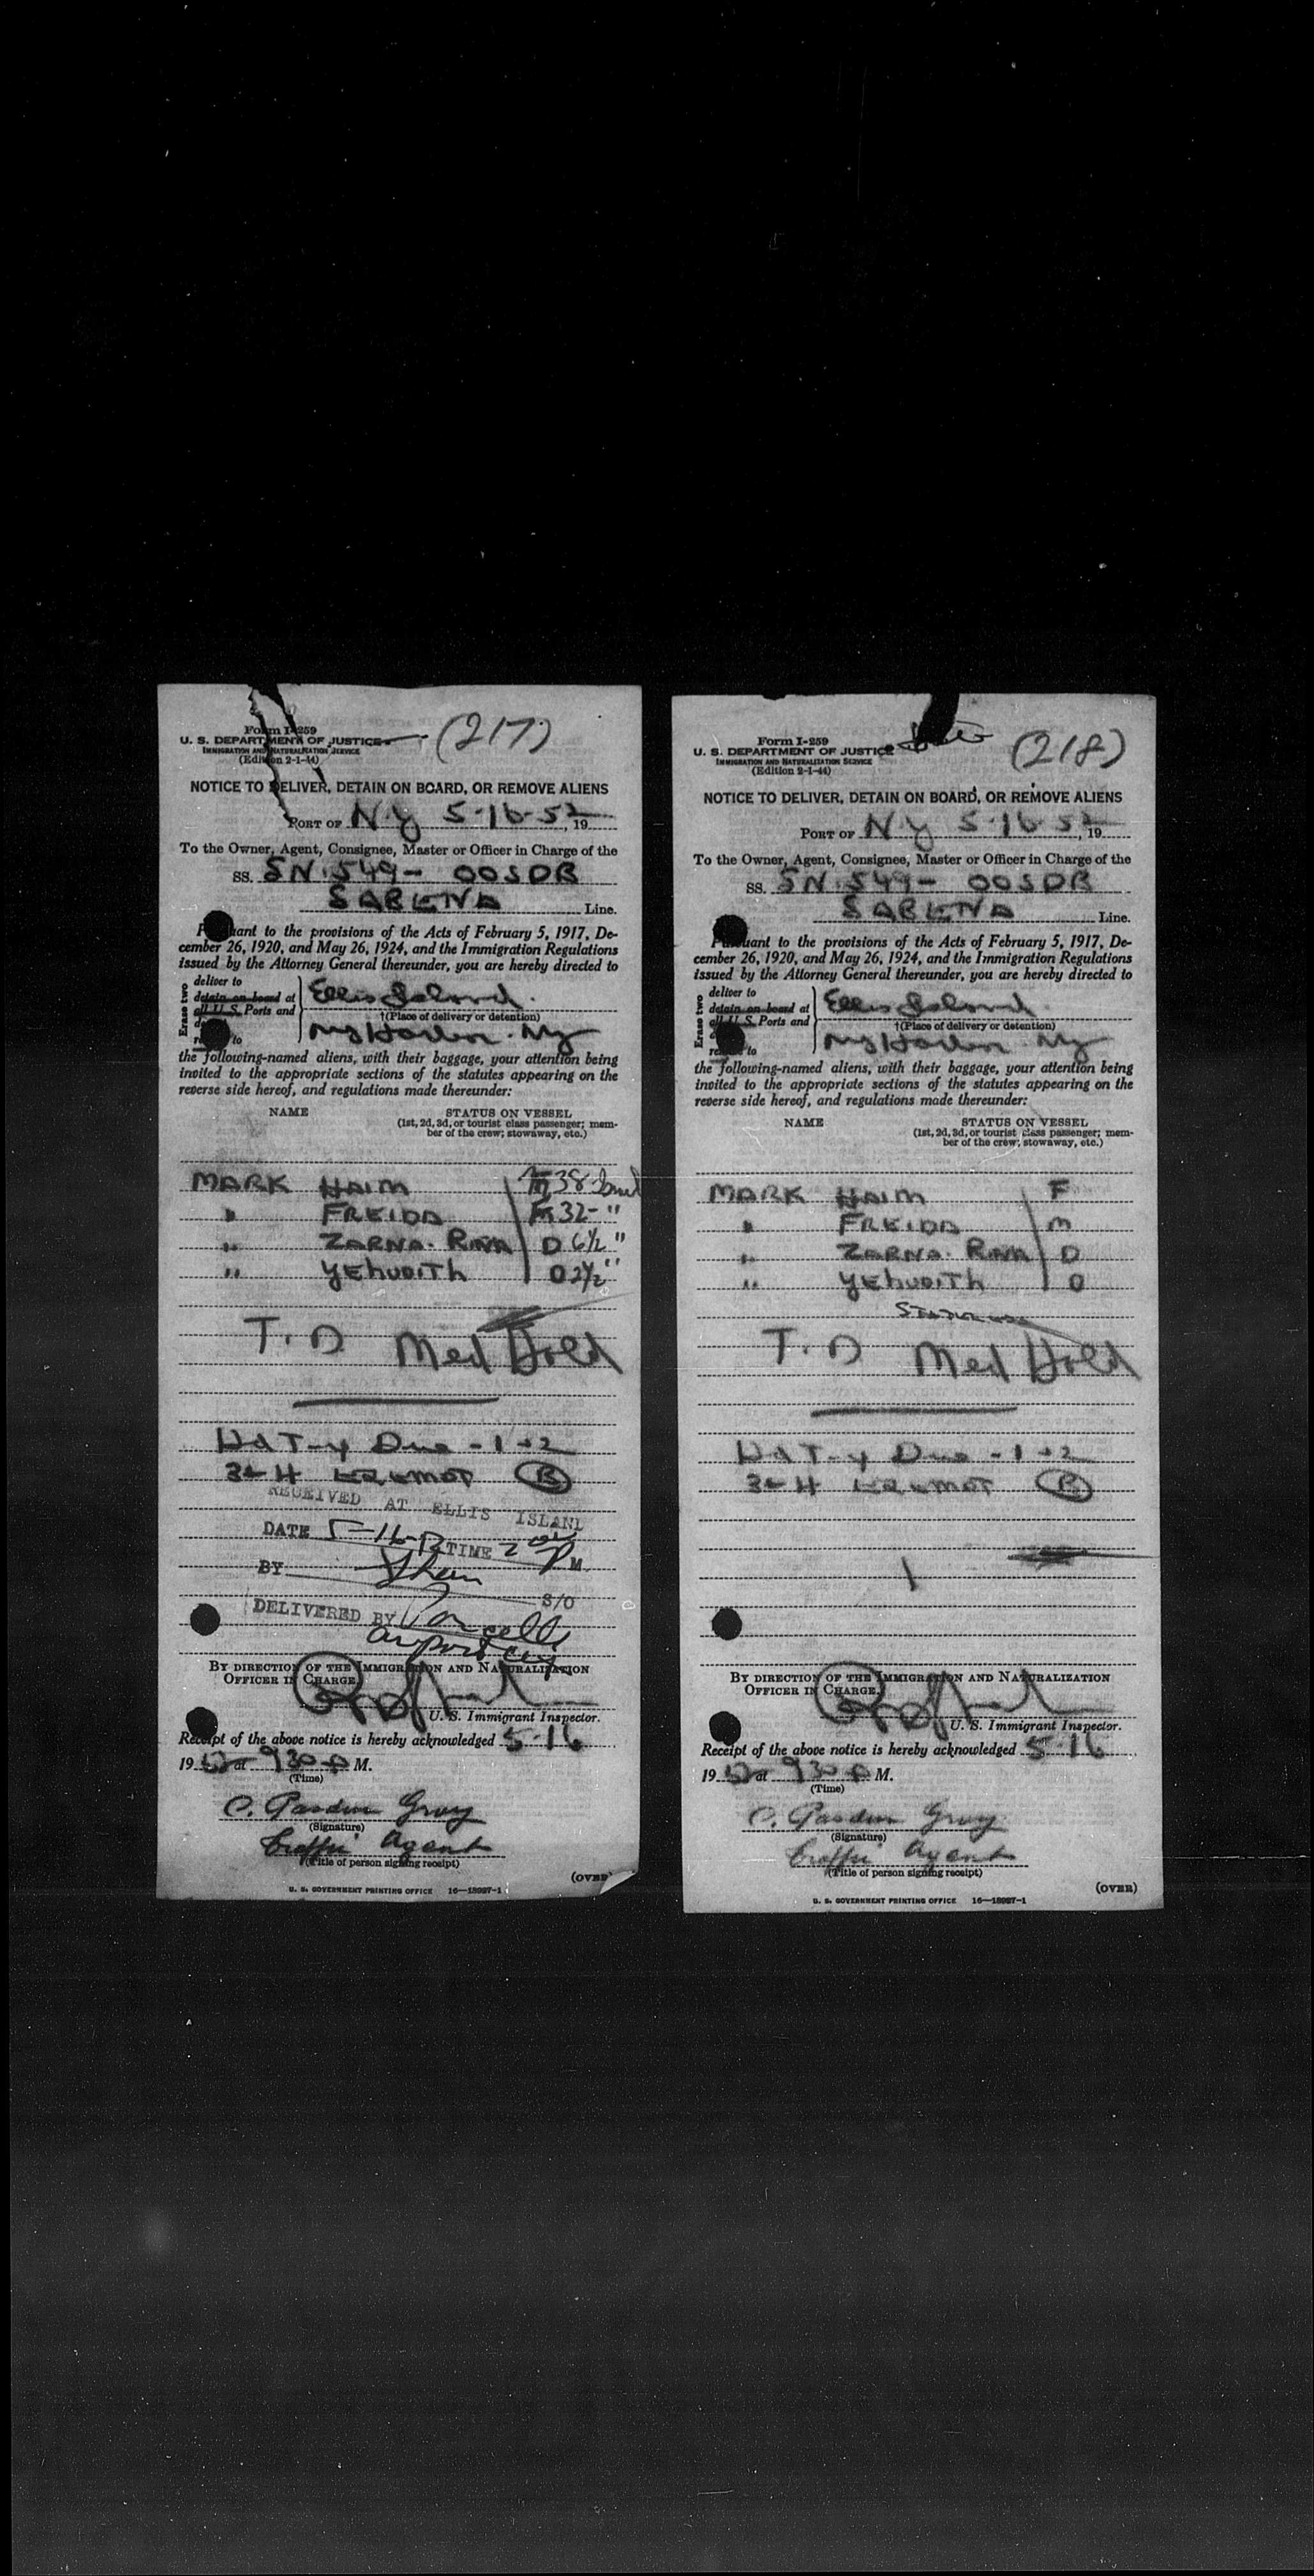 Form I-259
(217)
U. S. DEPARTMENT OF JUSTICE
IMMIGRATION AND NATURALIZATION SERVICE
(Edition 2-1-44)
NOTICE TO DELIVER, DETAIN ON BOARD, OR REMOVE ALIENS
PORT OF N.Y 5-16-52, 19
To the Owner, Agent, Consignee, Master or Officer in Charge of the
SS. SN-549- OOSDB
SABENA Line.
Pursuant to the provisions of the Acts of February 5, 1917, De-
cember 26, 1920, and May 26, 1924, and the Immigration Regulations
issued by the Attorney General thereunder, you are hereby directed to
Erase two
deliver to
detain on board at
all U. S. Ports and
to
Ellis Island.
†(Place of delivery or detention)
NY Harbor. NY
the following-named aliens, with their baggage, your attention being
invited to the appropriate sections of the statutes appearing on the
reverse side hereof, and regulations made thereunder:
NAME STATUS ON VESSEL
(1st, 2d, 3d, or tourist class passenger; mem-
ber of the crew; stowaway, etc.)
MARK HAIM 38
" FREIDA 32 "
" ZARNA. RINA D 6½ "
" YEHUDITH D 2½ "
T. D Med Hold
Hd T-y Due - 1+2
3+4 EXEMPT (B)
RECEIVED AT ELLIS ISLAND
DATE 5-16-52 TIME 2 P M
BY
S/O
DELIVERED BY
airport
BY DIRECTION OF THE IMMIGRATION AND NATURALIZATION
OFFICER IN CHARGE.
U. S. Immigrant Inspector.
Receipt of the above notice is hereby acknowledged 5-16
1952 at 930 P M.
(Time)
(Signature)
Traffic Agent
(Title of person signing receipt)
(OVER)
U. S. GOVERNMENT PRINTING OFFICE 16—18927-1
Form I-259
(218)
U. S. DEPARTMENT OF JUSTICE
IMMIGRATION AND NATURALIZATION SERVICE
(Edition 2-1-44)
NOTICE TO DELIVER, DETAIN ON BOARD, OR REMOVE ALIENS
PORT OF N.Y 5-16-52, 19
To the Owner, Agent, Consignee, Master or Officer in Charge of the
SS. SN-549- OOSDB
SABENA Line.
Pursuant to the provisions of the Acts of February 5, 1917, De-
cember 26, 1920, and May 26, 1924, and the Immigration Regulations
issued by the Attorney General thereunder, you are hereby directed to
Erase two
deliver to
detain on board at
all U. S. Ports and
to
Ellis Island
†(Place of delivery or detention)
NY Harbor. NY
the following-named aliens, with their baggage, your attention being
invited to the appropriate sections of the statutes appearing on the
reverse side hereof, and regulations made thereunder:
NAME STATUS ON VESSEL
(1st, 2d, 3d, or tourist class passenger; mem-
ber of the crew; stowaway, etc.)
MARK HAIM F
" FREIDA M
" ZARNA. RINA D
" YEHUDITH D
T. D Med Hold
Hd T-y Due - 1+2
3+4 EXEMPT (B)
BY DIRECTION OF THE IMMIGRATION AND NATURALIZATION
OFFICER IN CHARGE.
U. S. Immigrant Inspector.
Receipt of the above notice is hereby acknowledged 5-16
1952 at 930 P M.
(Time)
(Signature)
Traffic Agent
(Title of person signing receipt)
(OVER)
U. S. GOVERNMENT PRINTING OFFICE 16—18927-1